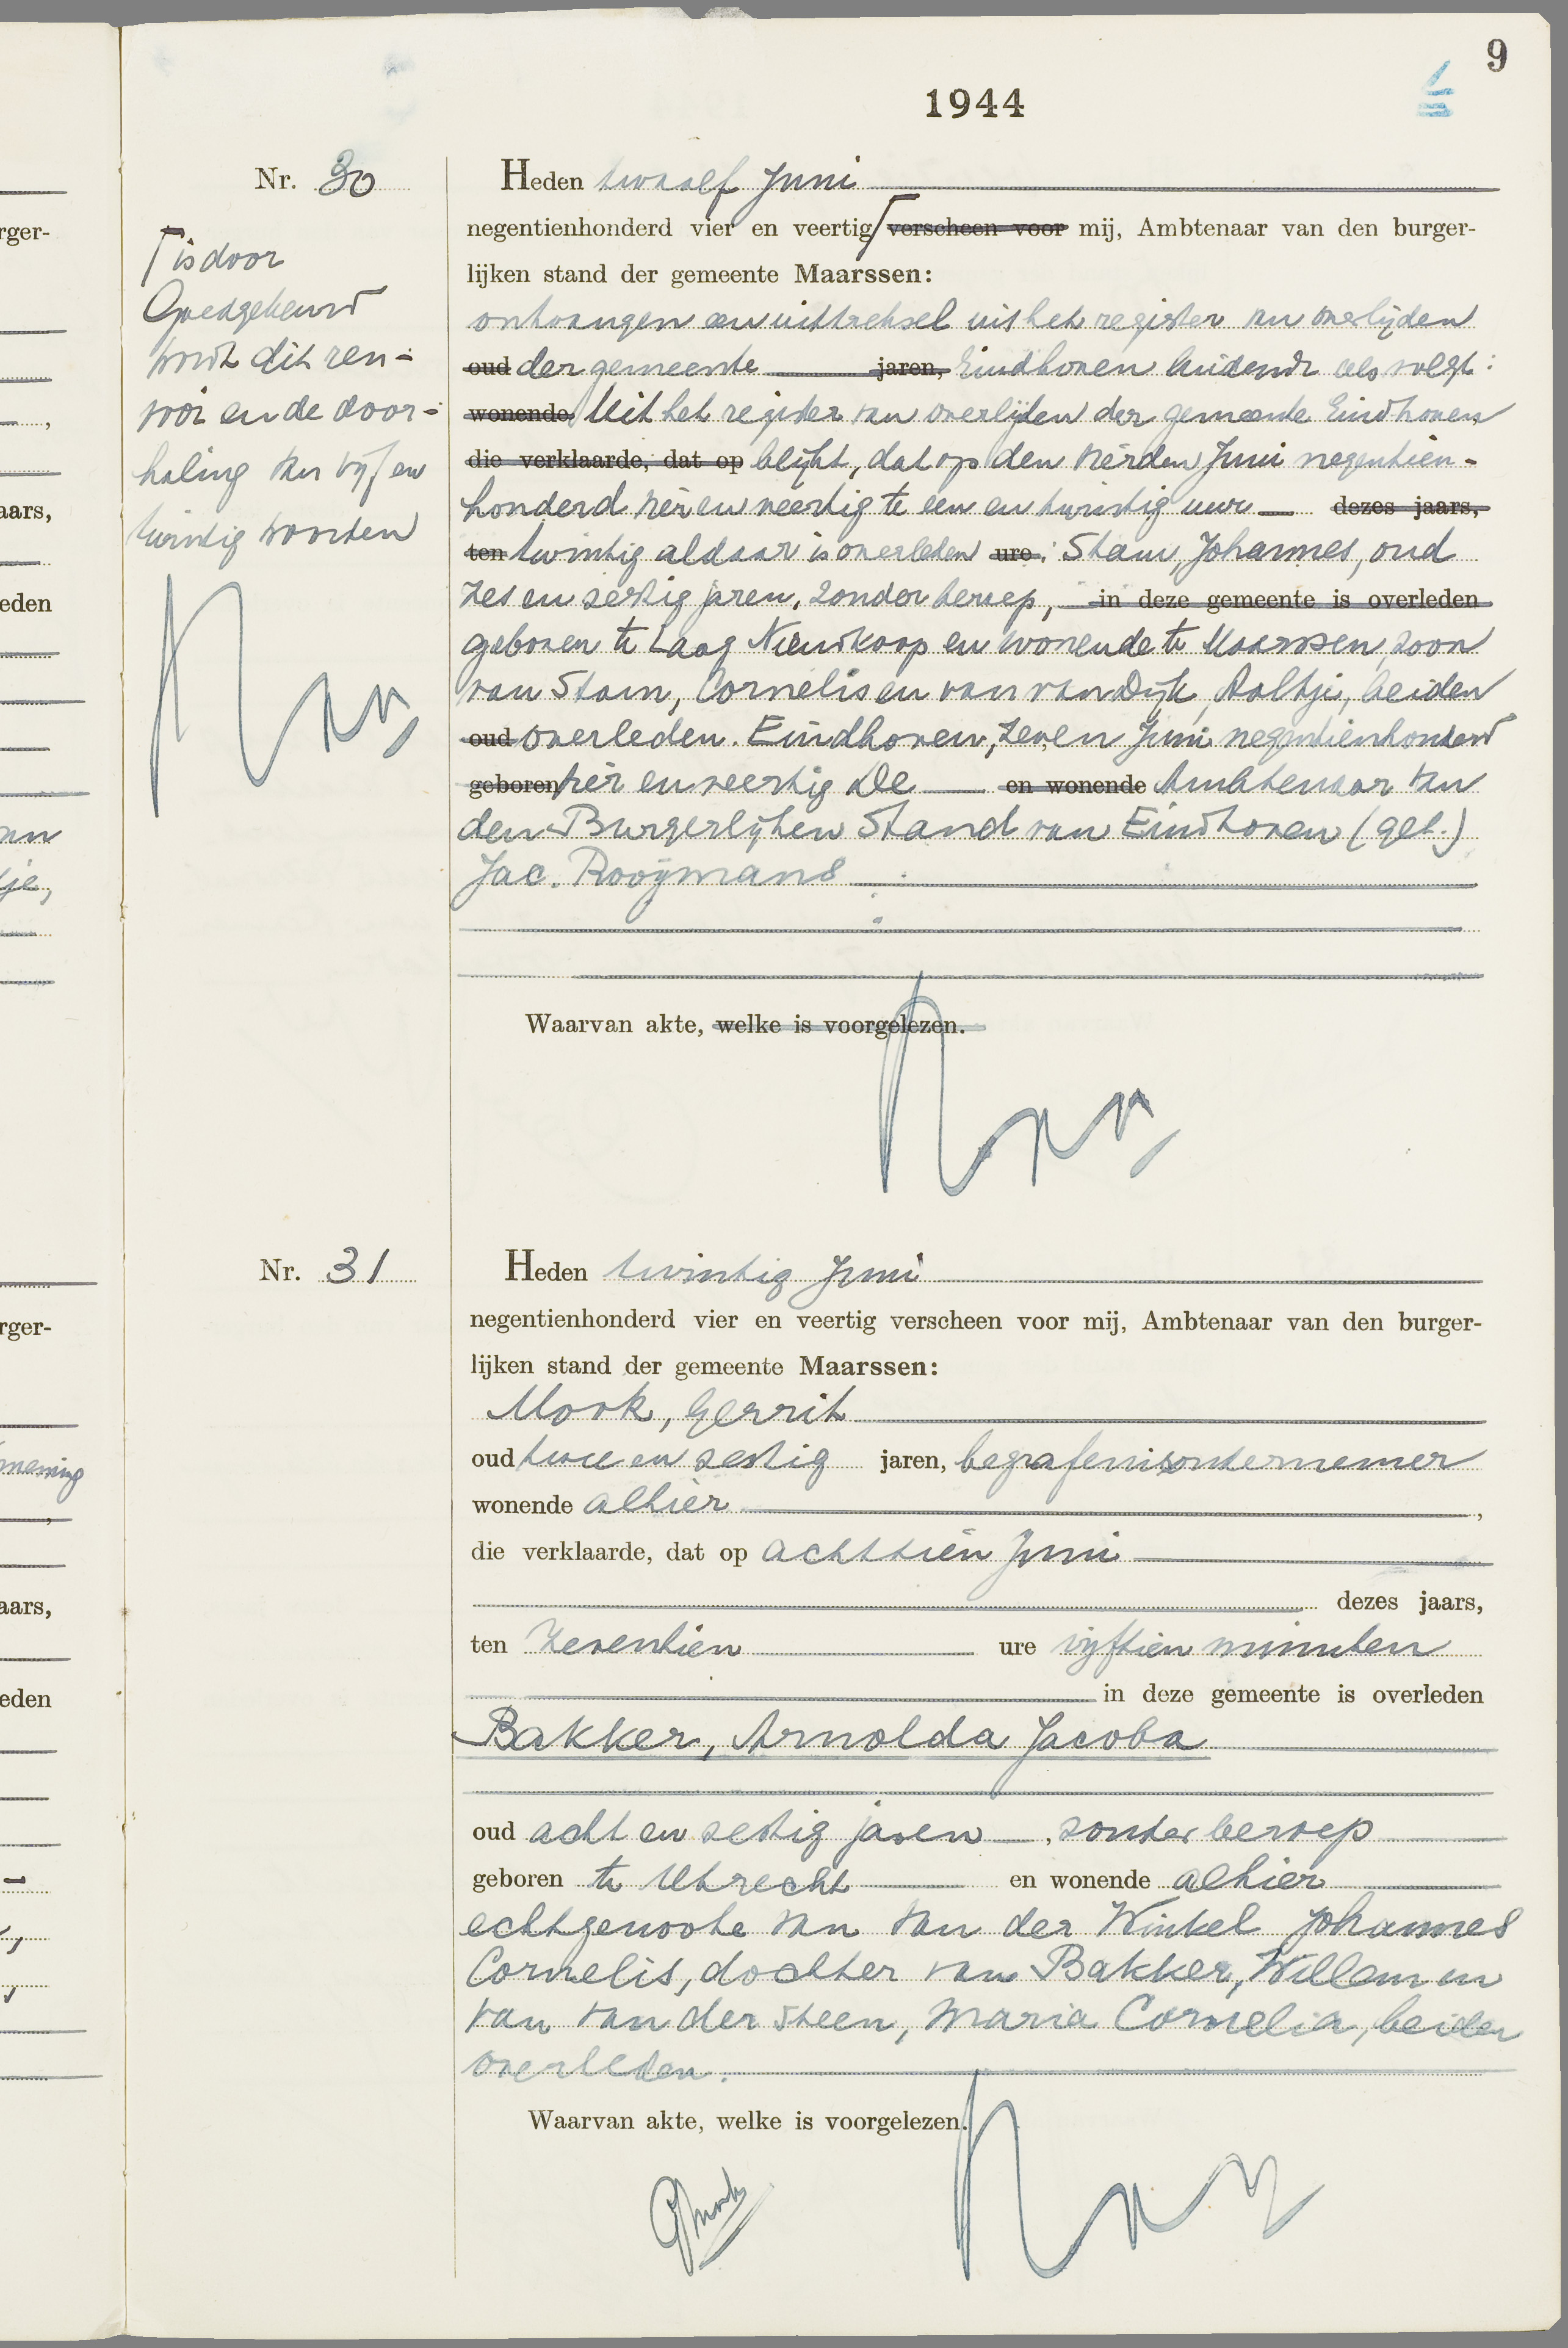 9
1944
Nr. 30
⌈ is door
Goedgekeurd
wordt dit ren-
vooi en de door-
haling van vijf en
twintig woorden
Heden twaalf Juni
negentienhonderd vier en veertig ⌈ verscheen voor mij, Ambtenaar van den burger-
lijken stand der gemeente Maarssen:
ontvangen een uittreksel uit het register van overlijden
oud der gemeente jaren, Eindhoven luidende als volgt:
wonende Uit het register van overlijden der gemeente Eindhoven
die verklaarde, dat op blijkt, dat op den vierden Juni negentien-
honderd vier en veertig te een en twintig uur dezes jaars,
ten twintig aldaar is overleden ure: Stam, Johannes, oud
zes en zestig jaren, zonder beroep, in deze gemeente is overleden
geboren te Laag Nieuwkoop en wonende te Maarssen, zoon
van Stam, Cornelis en van van Dijk, Aaltje, beiden
oud overleden. Eindhoven, zeven Juni negentienhonderd
geboren vier en veertig De en wonende Ambtenaar van
den Burgerlijken Stand van Eindhoven (get.)
Jac. Rooijmans
Waarvan akte, welke is voorgelezen.
Nr. 31
Heden twintig Juni
negentienhonderd vier en veertig verscheen voor mij, Ambtenaar van den burger-
lijken stand der gemeente Maarssen:
Mook, Gerrit
oud twee en zestig jaren, begrafenisondernemer
wonende alhier,
die verklaarde, dat op achttien Juni
dezes jaars,
ten zeventien ure vijftien minuten
in deze gemeente is overleden
Bakker, Arnolda Jacoba
oud acht en zestig jaren, zonder beroep
geboren te Utrecht en wonende alhier
echtgenoote van van der Winkel Johannes
Cornelis, dochter van Bakker, Willem en
van van der Steen, Maria Cornelia, beiden
overleden.
Waarvan akte, welke is voorgelezen.
GMook
rger-
aars,
eden
an
tje,
rger-
neming
aars,
eden